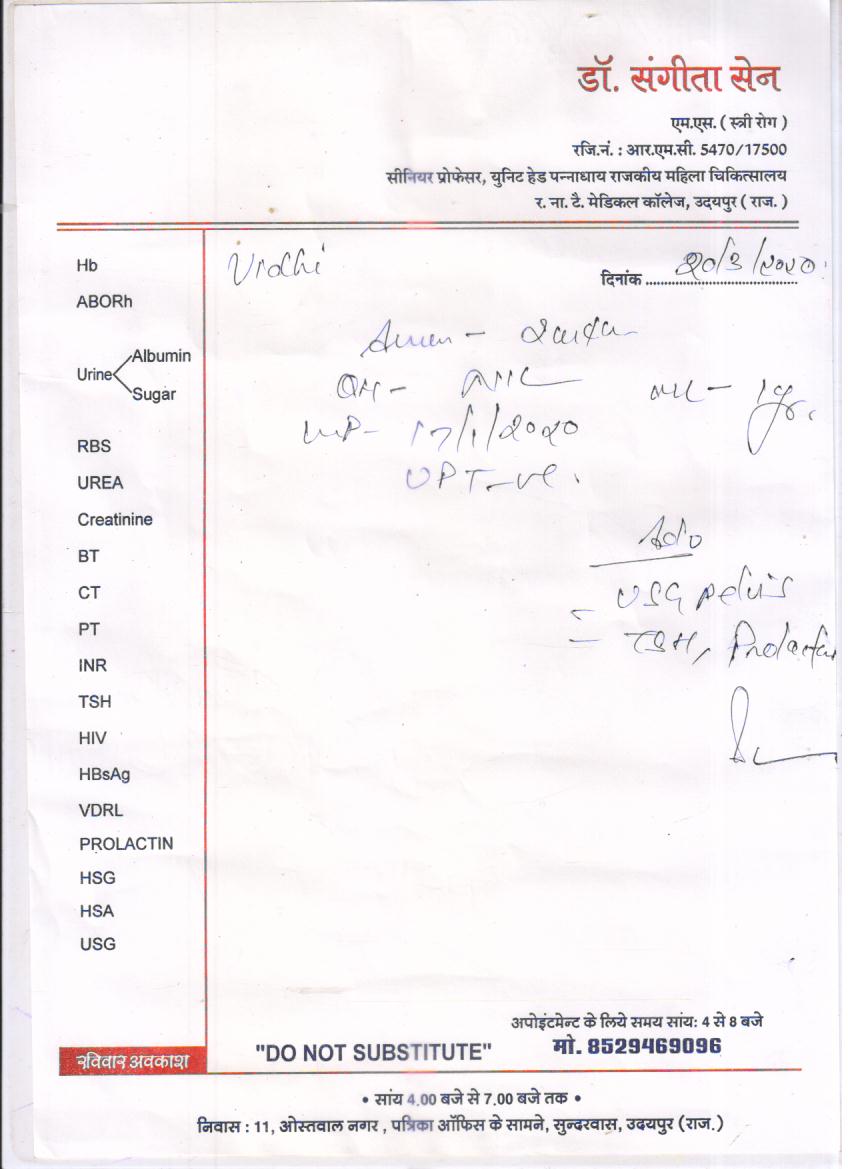 डॉ. संगीता सेन
एम.एस. ( स्त्री रोग )
रजि.नं. : आर.एम.सी. 5470/17500
सीनियर प्रोफेसर, युनिट हेड पन्नाधाय राजकीय महिला चिकित्सालय
र. ना. टै. मेडिकल कॉलेज, उदयपुर ( राज. )
दिनांक २०/३/२०२०
17/1/२०२०
UPT-ve.
Ado
USG pelvis
TSH,
Hb
ABORh
Urine
Albumin
Sugar
RBS
UREA
Creatinine
BT
CT
PT
INR
TSH
HIV
HBsAg
VDRL
PROLACTIN
HSG
HSA
USG
रविवार अवकाश
"DO NOT SUBSTITUTE"
अपोइंटमेन्ट के लिये समय सांय: 4 से 8 बजे
मो. 8529469096
• सांय 4.00 बजे से 7.00 बजे तक •
निवास : 11, ओस्तवाल नगर , पत्रिका ऑफिस के सामने, सुन्दरवास, उदयपुर (राज.)